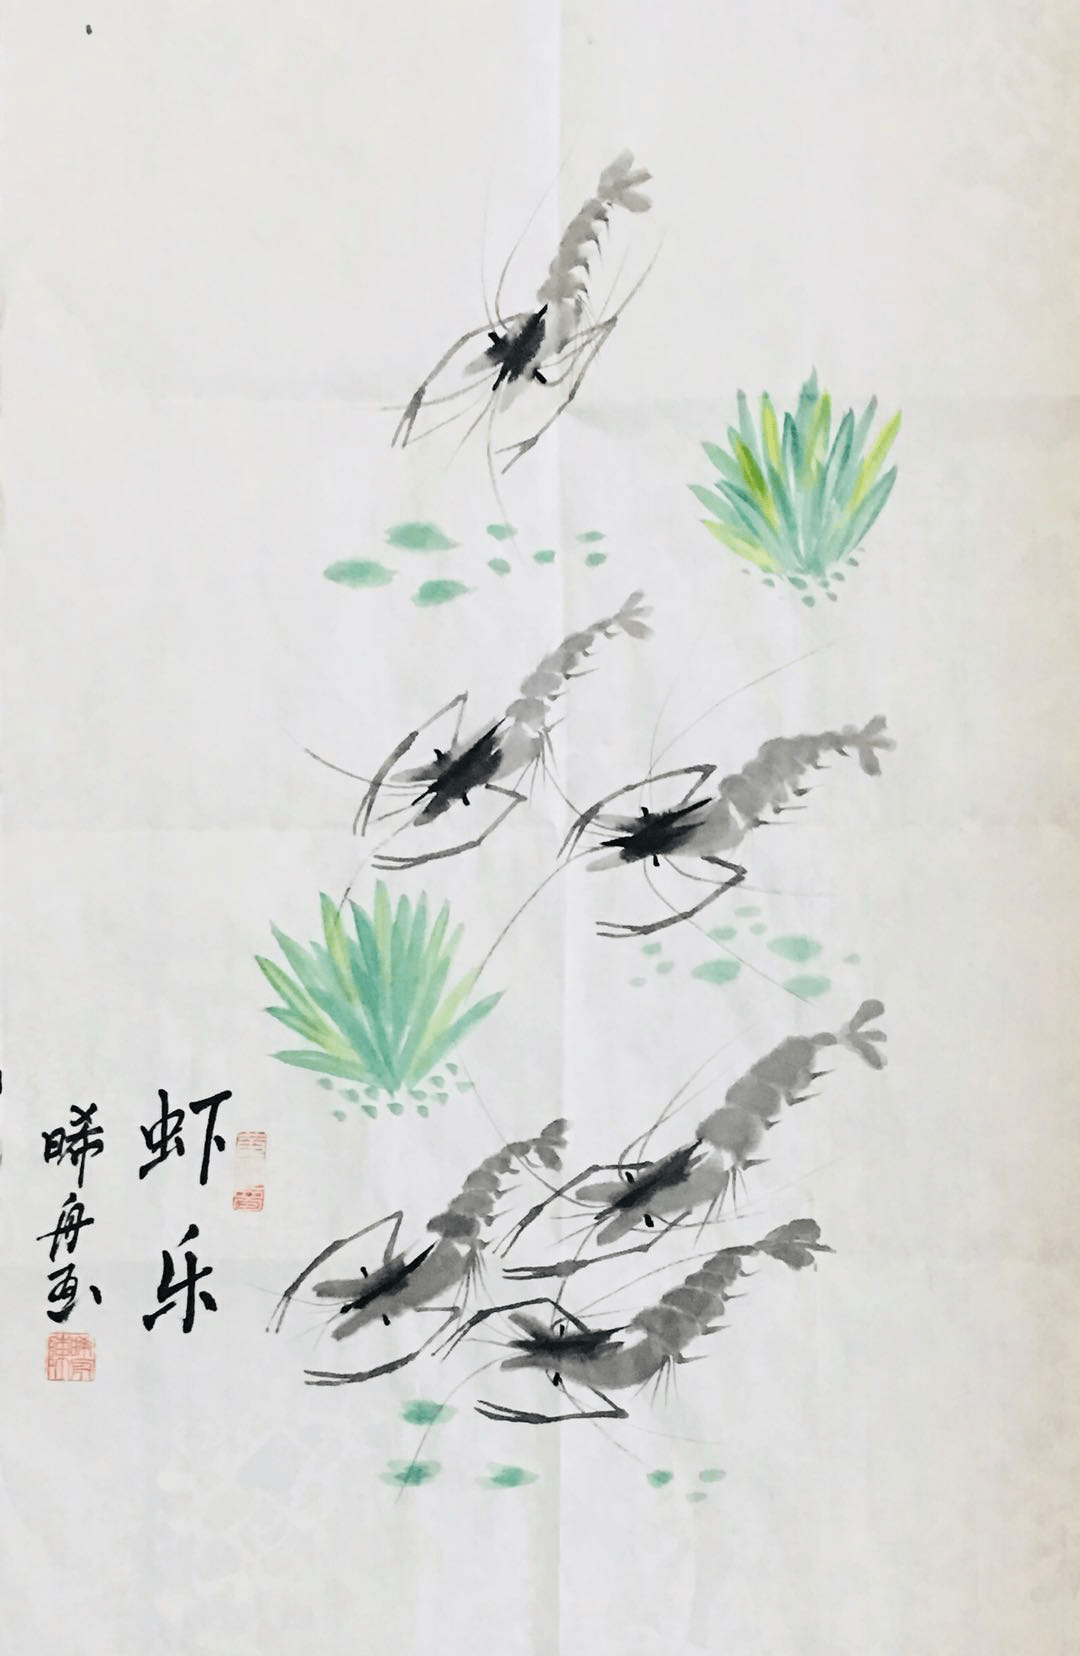 虾乐
晞舟画